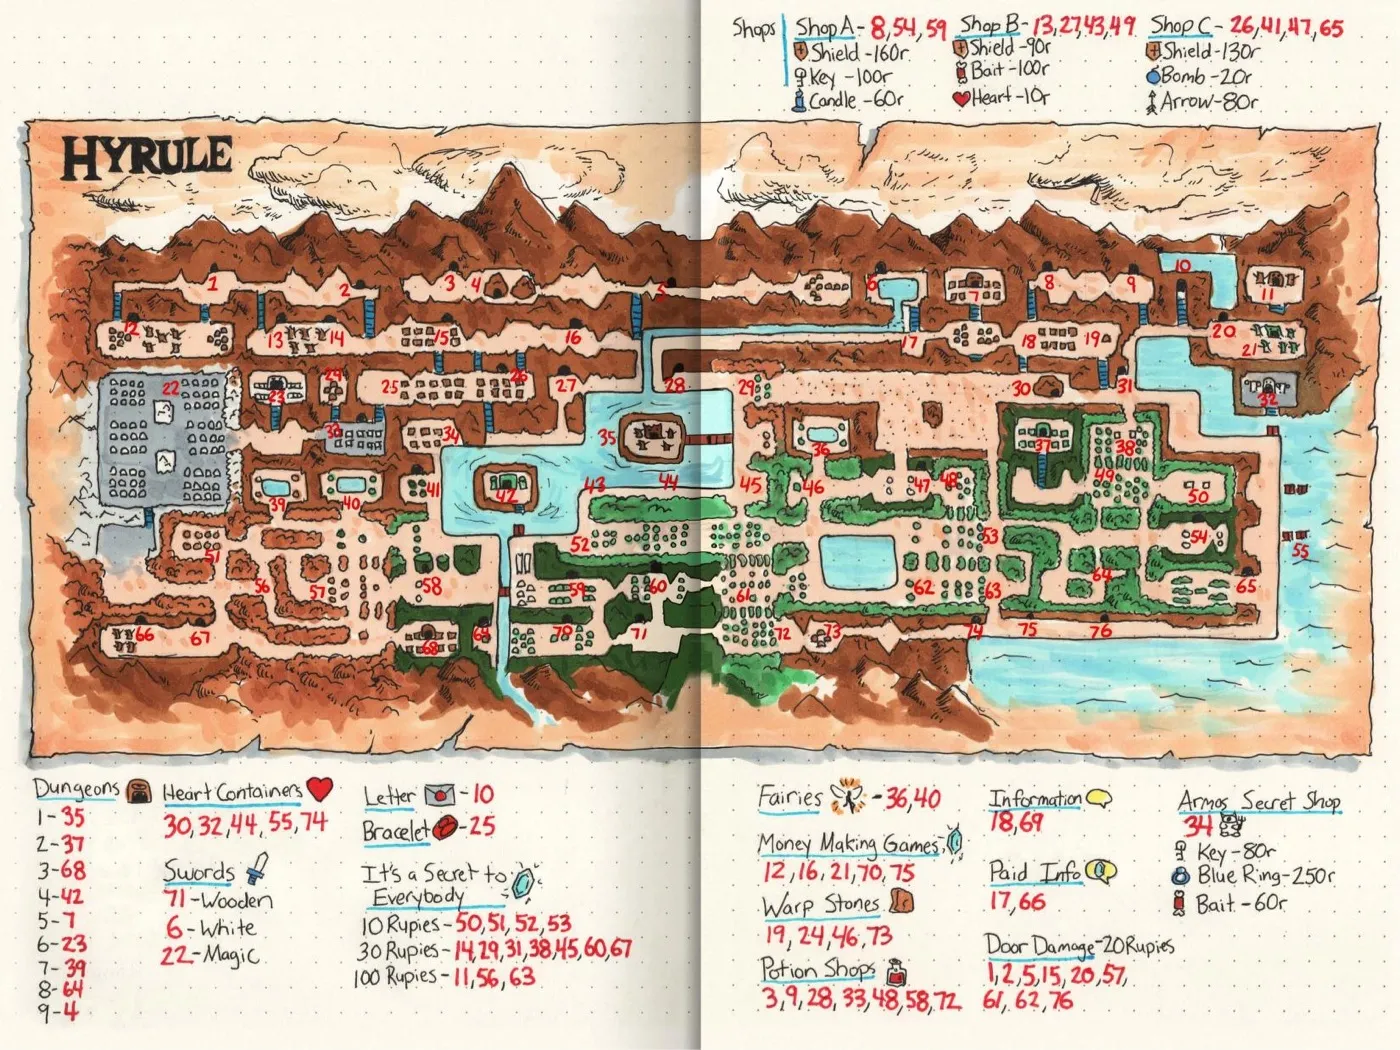 Shops
Shop A- 8,54,59
Shield -160r
Key -100r
Candle -60r
Shop B- 13,27,43,49
Shield -90r
Bait -100r
Heart -10r
Shop C- 26,41,47,65
Shield-130r
Bomb -20r
Arrow-80r
HYRULE
1 2 3 4 5 6 7 8 9 10 11
12 13 14 15 16 17 18 19 20 21
22 23 24 25 26 27 28 29 30 31 32
33 34 35 36 37 38
39 40 41 42 43 44 45 46 47 48 49 50
51 52 53 54 55
56 57 58 59 60 61 62 63 64 65
66 67 68 69 70 71 72 73 74 75 76
Dungeons
1-35
2-37
3-68
4-42
5-7
6-23
7-39
8-64
9-4
Heart Containers
30,32,44,55,74
Swords
71-Wooden
6-White
22-Magic
Letter -10
Bracelet -25
It's a Secret to
Everybody
10 Rupies-50,51,52,53
30 Rupies-14,29,31,38,45,60,67
100 Rupies-11,56,63
Fairies -36,40
Money Making Games
12,16,21,70,75
Warp Stones
19,24,46,73
Potion Shops
3,9,28,33,48,58,72
Information
18,69
Paid Info
17,66
Door Damage-20Rupies
1,2,5,15,20,57,
61,62,76
Armos Secret Shop
34
Key-80r
Blue Ring-250r
Bait-60r